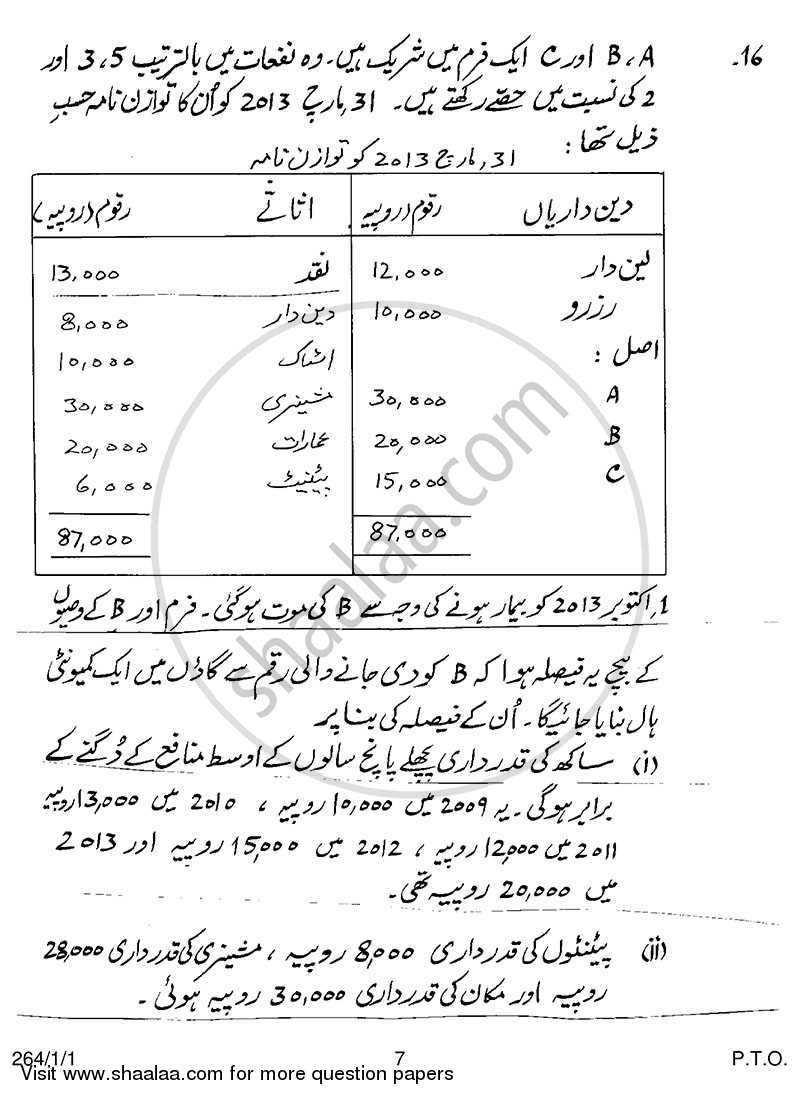 16۔ B، A اور C ایک فرم میں شریک ہیں۔ وہ نفعات میں بالترتیب 5، 3 اور
2 کی نسبت میں حصّے رکھتے ہیں۔ 31, مارچ 2013 کو اُن کا توازن نامہ حسبِ
ذیل تھا:
31, مارچ 2013 کو توازن نامہ
دین داریاں رقوم (روپیہ) اثاثے رقوم (روپیہ)
لین دار 12,000 نقد 13,000
رزرو 10,000 دین دار 8,000
اصل: اسٹاک 10,000
A 30,000 مشینری 30,000
B 20,000 عمارات 20,000
C 15,000 پیٹنیٹ 6,000
87,000 87,000
1, اکتوبر 2013 کو بیمار ہونے کی وجہ سے B کی موت ہوگئی۔ فرم اور B کے وصیوں
کے بیچ یہ فیصلہ ہوا کہ B کو دی جانے والی رقم سے گاؤں میں ایک کمیونٹی
ہال بنایا جائیگا۔ اُن کے فیصلہ کی بنا پر
(i) ساکھ کی قدرداری پچھلے پانچ سالوں کے اوسط منافع کے دُگنے کے
برابر ہوگی۔ یہ 2009 میں 10,000 روپیہ، 2010 میں 13,000 روپیہ
2011 میں 12,000 روپیہ، 2012 میں 15,000 روپیہ اور 2013
میں 20,000 روپیہ تھی۔
(ii) پیٹنٹوں کی قدرداری 8,000 روپیہ، مشینری کی قدرداری 28,000
روپیہ اور مکان کی قدرداری 30,000 روپیہ ہوئی۔
264/1/1 7 P.T.O.
Visit www.shaalaa.com for more question papers
shaalaa.com